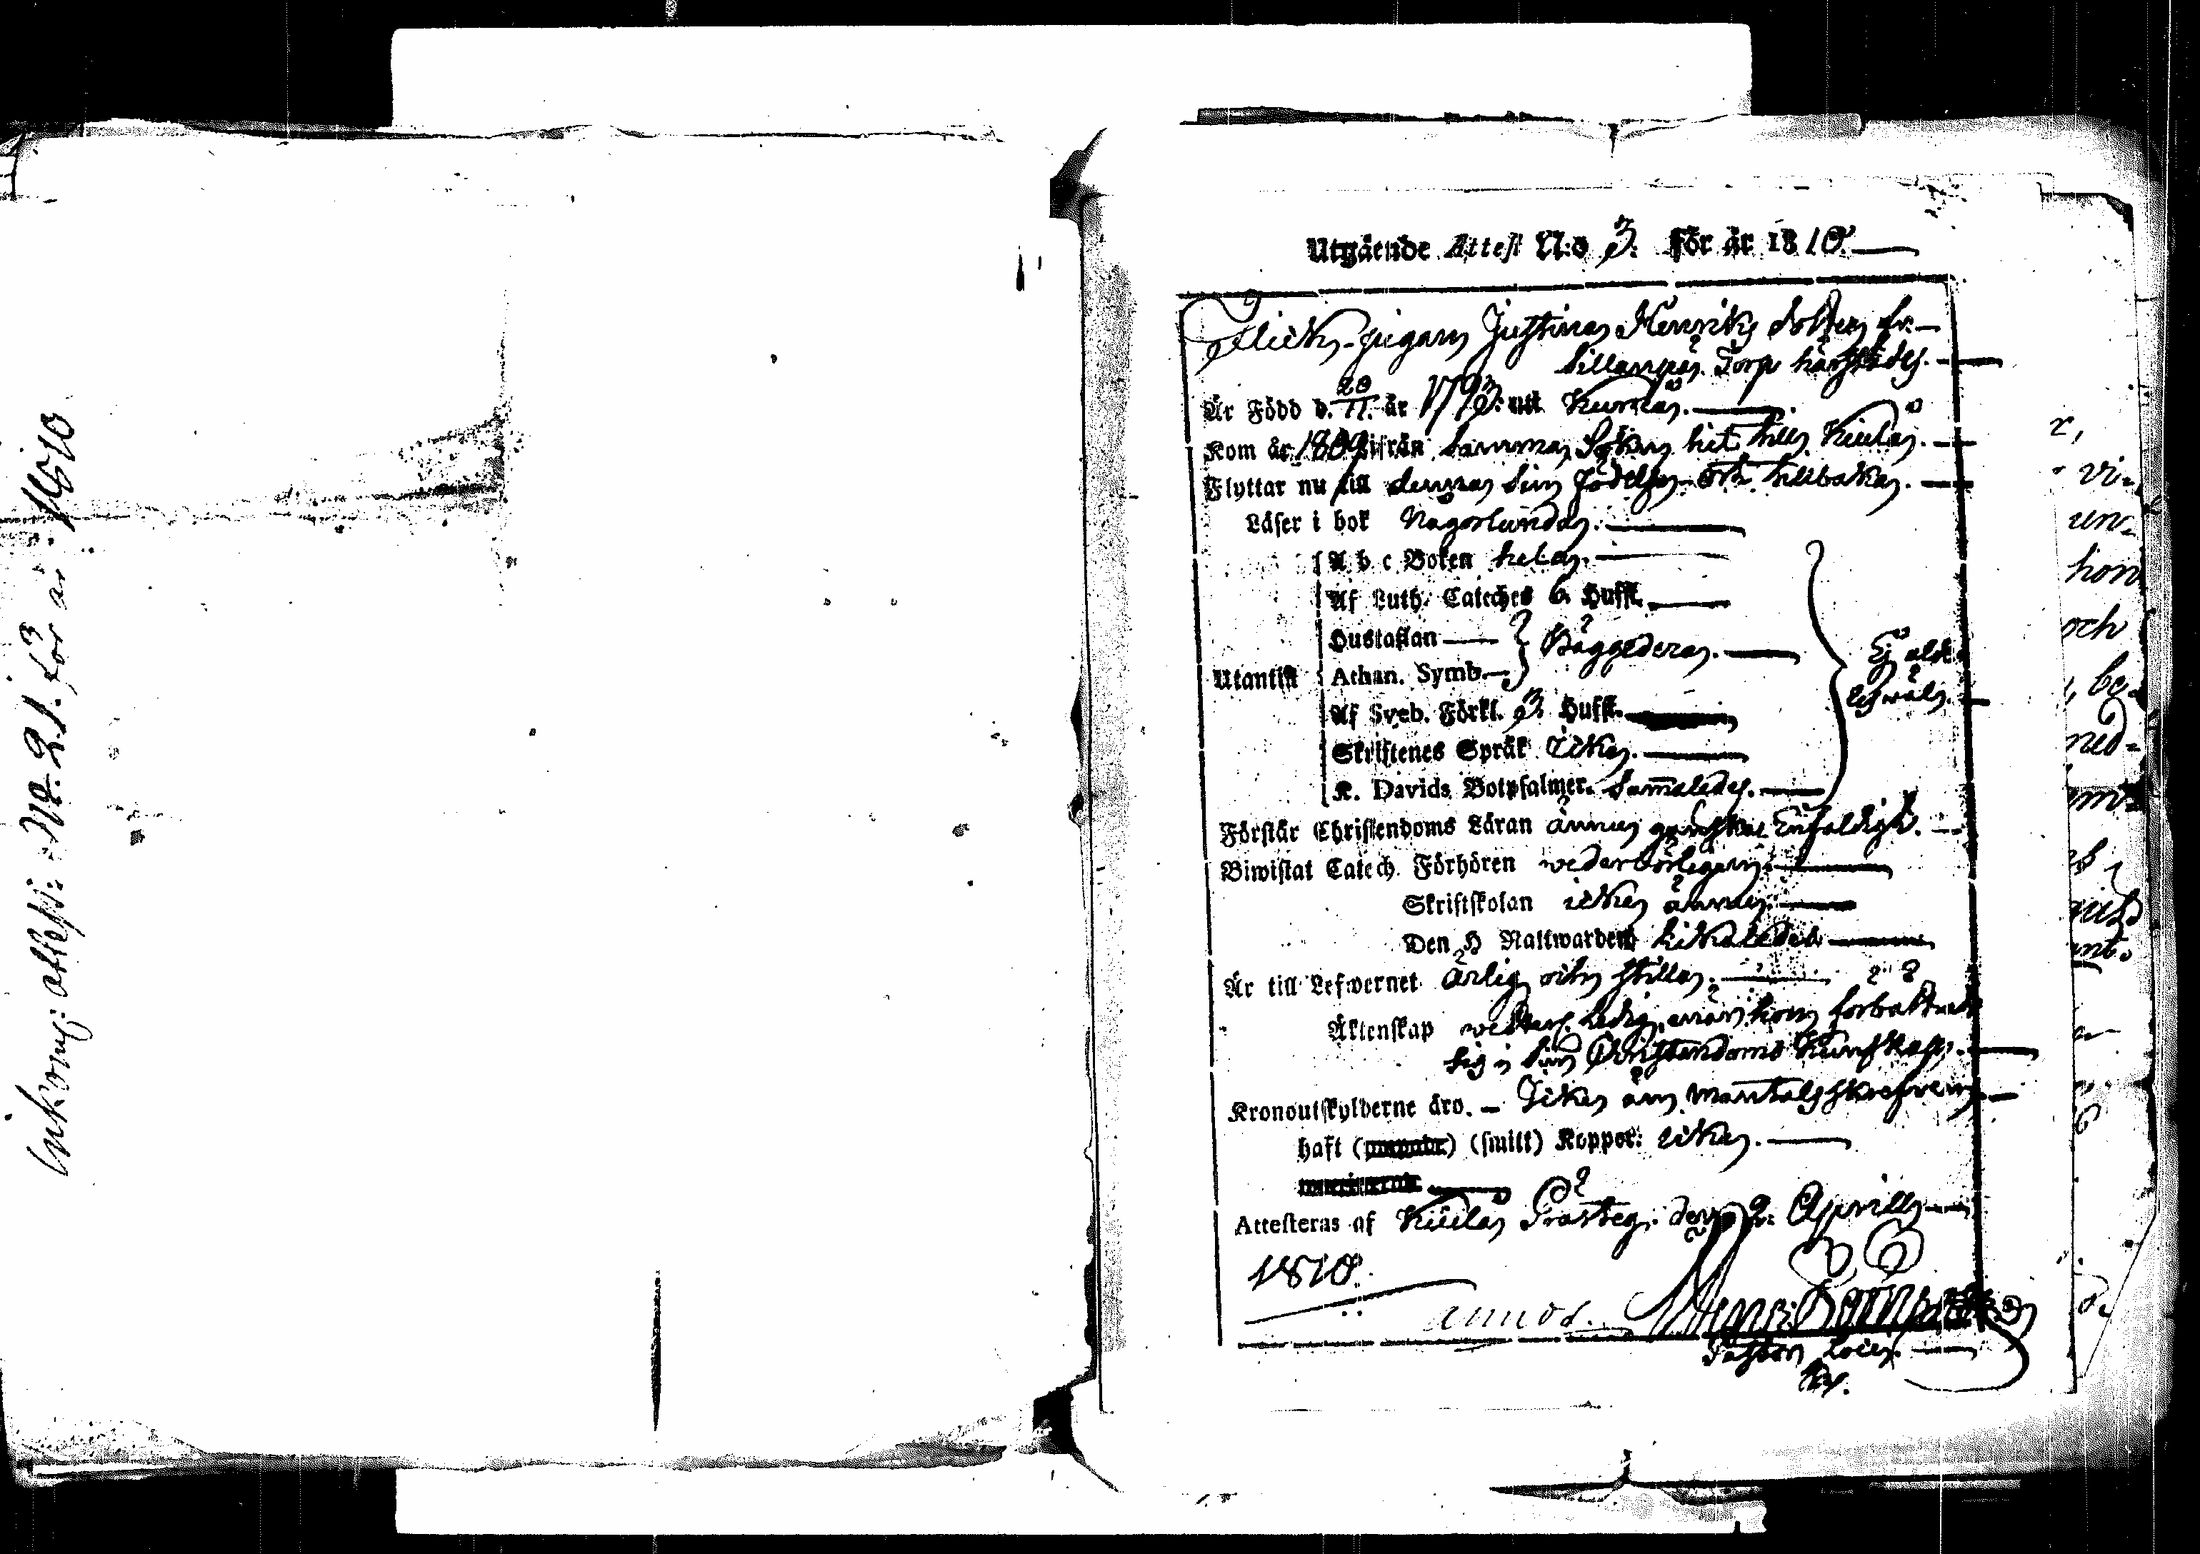 Inkom: attest: No. 21. för år 1810
Utgående Attest N:o 3. För år 1810.
Flick-pigan Justina Henriks dotter fr.
Sillanpää Torp härstädes.
Är Född d. 20/11. år 1793. uti Kumla.
Kom år 1809 ifrån samma Sokn hit till Kiula.
Flyttar nu till denna sin födelse ort tillbaka.
Läser i bok Någorlunda.
A b c Boken hela.
Af Luth. Cateches 6. Hufst.
Hustaflan
Bäggedera.
Athan. Symb.
Utantill
Ej alde
les väl.
Af Sveb. Förkl. 3. Hufst.
Skriftenes Språk icke.
K. Davids Botpsalmer. Sam̄aledes.
Förstår Christendoms Läran ännu ganska Enfaldigt.
Biwistat Catech. Förhören wederbörligen.
Skriftskolan icke ännu.
Den H Nattwarden likaledes
Är till Lefwernet ärlig och stilla.
Äktenskap ledig, när hon förbättrat
sig i sin Christendoms Kunskap.
Kronoutskylderne äro. – Icke än mantalsskrefven.
haft (smitt) Koppor: icke.
Attesteras af Kiula Prästeg. den 2. Aprill
1810.
Pastor Loci